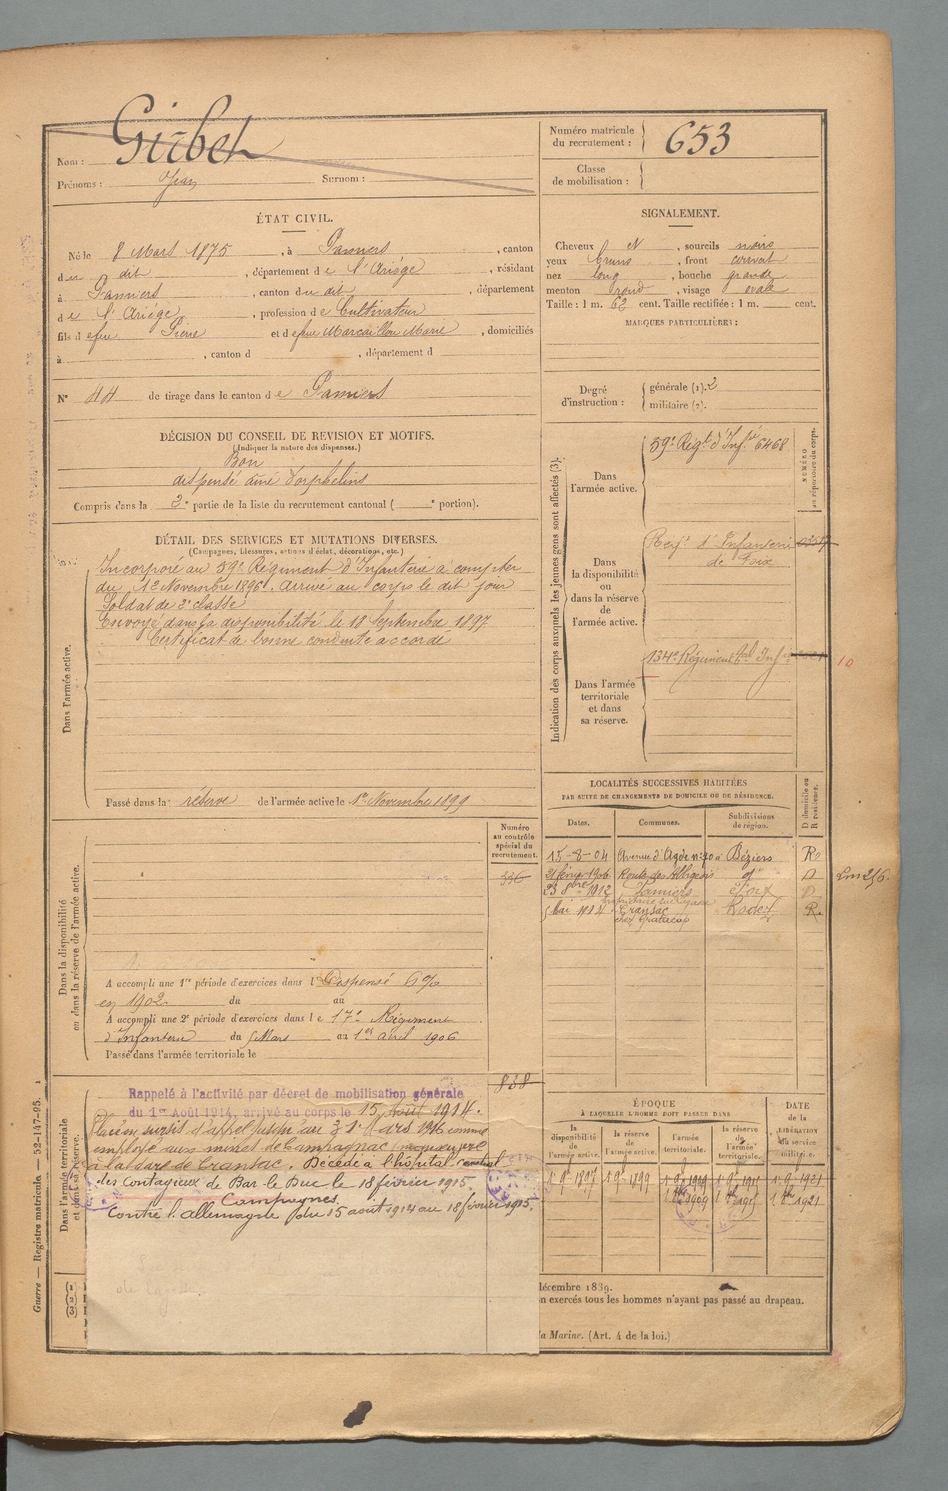 Nom : Girbet
Prénoms : Jean Surnom :
Numéro matricule du recrutement : 653
Classe de mobilisation :
ÉTAT CIVIL.
Né le 8 Mars 1875, à Pamiers, canton
du dit, département de l'Ariège, résidant
à Pamiers, canton du dit, département
de l'Ariège, profession de Cultivateur
fils d efeu Pierre et d efeue Marcaillou Marie, domiciliés
à , canton d , département d
N° 44 de tirage dans le canton de Pamiers
SIGNALEMENT.
Cheveux N, sourcils noirs
yeux bruns, front couvert
nez long, bouche grande
menton rond, visage ovale
Taille : 1 m. 62 cent. Taille rectifiée : 1 m. cent.
MARQUES PARTICULIÈRES :
Degré d'instruction : générale (1). 2
militaire (2).
DÉCISION DU CONSEIL DE REVISION ET MOTIFS.
(Indiquer la nature des dispenses.)
Bon
dispensé ainé d'orphelins
Compris dans la 2e partie de la liste du recrutement cantonal ( e portion).
DÉTAIL DES SERVICES ET MUTATIONS DIVERSES.
(Campagnes, blessures, actions d'éclat, décorations, etc.)
Dans l'armée active.
Incorporé au 59e Régiment d'Infanterie à compter
du 1er Novembre 1896. Arrivé au corps le dit jour
Soldat de 2e classe
Envoyé dans la disponibilité le 18 Septembre 1897
Certificat de bonne conduite accordé
Passé dans la réserve de l'armée active le 1er Novembre 1899
Indication des corps auxquels les jeunes gens sont affectés (3).
NUMÉRO au répertoire du corps.
Dans l'armée active.
59e Régt d'Infie 6468
Dans la disponibilité ou dans la réserve de l'armée active.
Regt d'Infanterie
de Foix
Dans l'armée territoriale et dans sa réserve.
134e Régiment tal Infie
10
LOCALITÉS SUCCESSIVES HABITÉES
PAR SUITE DE CHANGEMENTS DE DOMICILE OU DE RÉSIDENCE.
D domicile ou R résidence.
Dates. Communes. Subdivisions de région.
15-8-04 Avenue d'Agde n° 10 à Béziers R
21 février 1906 Route des Albigeois do D
23 8bre 1912 Pamiers Foix D
5 Mai 1914 Cransac Rodez R.
Dans la disponibilité ou dans la réserve de l'armée active.
Numéro au contrôle spécial du recrutement.
336
A accompli une 1re période d'exercices dans l Dispensé
en 1902 du au
A accompli une 2e période d'exercices dans le 17e Régiment
d'Infanterie du 5 Mars au 1er avril 1906
Passé dans l'armée territoriale le
838
Dans l'armée territoriale et dans sa réserve.
Rappelé à l'activité par décret de mobilisation générale
du 1er Août 1914, arrivé au corps le 15 Août 1914.
Placé en sursis d'appel jusqu'au 31 Mars 1916 comme
employé aux mines de Campagnac manœuvre
à la gare de Cransac. Décédé à l'hôpital central
des Contagieux de Bar le Duc le 18 février 1915.
Campagnes.
Contre l'Allemagne du 15 août 1914 au 18 février 1915.
ÉPOQUE
À LAQUELLE L'HOMME DOIT PASSER DANS
DATE de la LIBÉRATION du service militaire.
la disponibilité de l'armée active. la réserve de l'armée active. l'armée territoriale. la réserve de l'armée territoriale.
(1) (2) (3)
décembre 1889.
n exercés tous les hommes n'ayant pas passé au drapeau.
la Marine. (Art. 4 de la loi.)
Guerre — Registre matricule — 52-147-95.